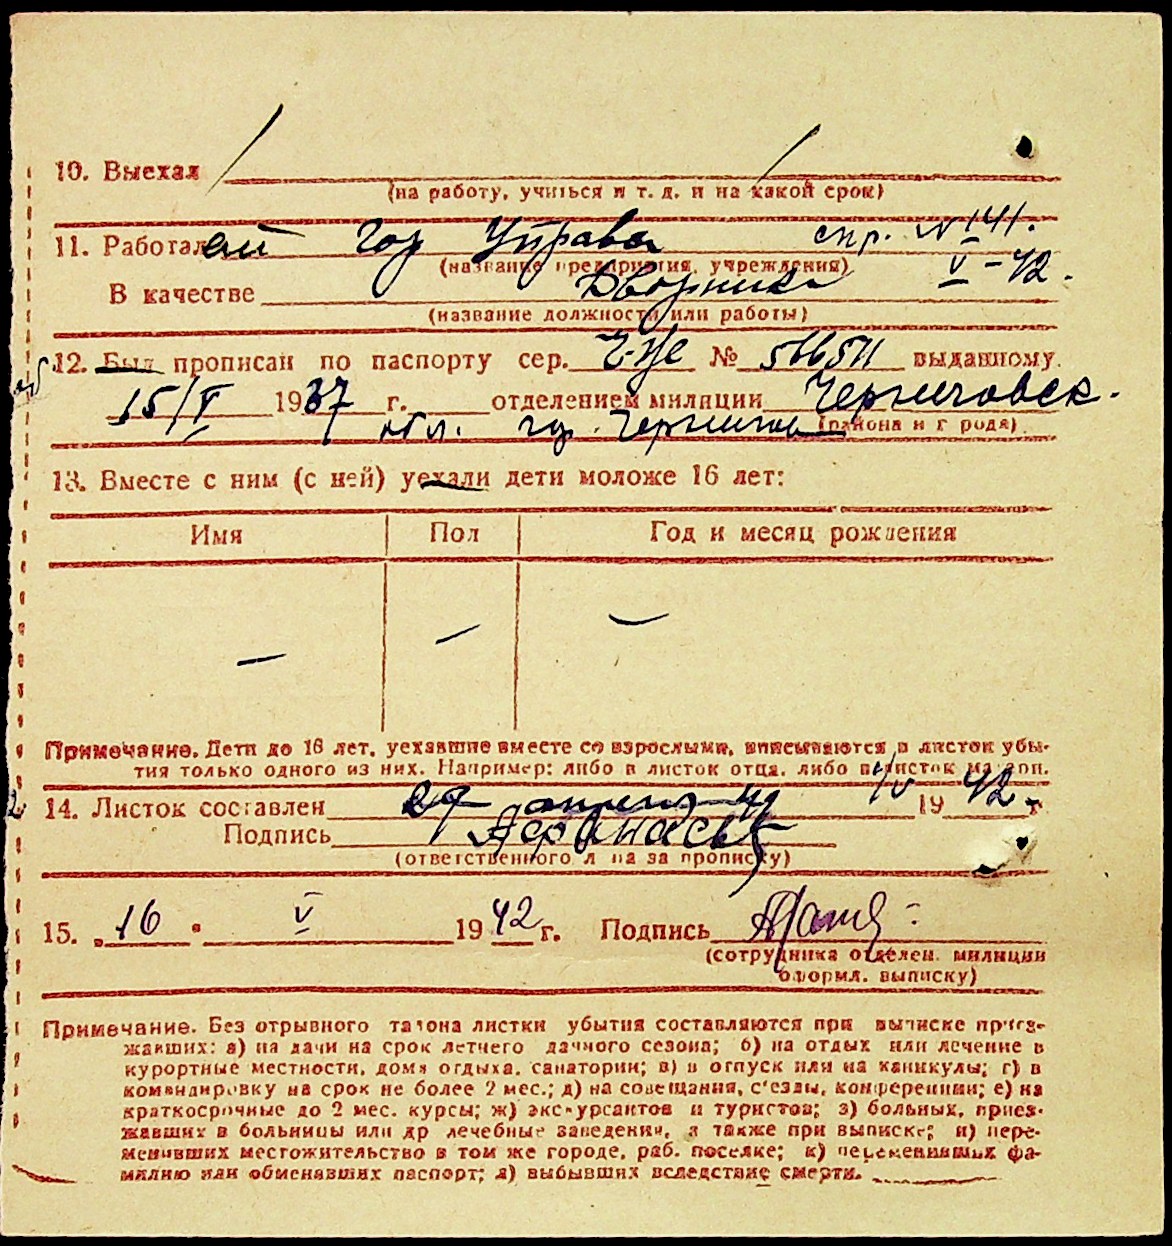 10. Выехал
(на работу, учиться и т. д. и на какой срок)
11. Работает Гор Управа спр. №141.
(название предприятия, учреждения) V-42.
В качестве Дворника
(название должности или работы)
12. Был прописан по паспорту сер. № выданному
15/V 1937 г. отделением милиции Черниговск.
обл. гор. Чернигов (района и г рода)
13. Вместе с ним (с ней) уехали дети моложе 16 лет:
Имя Пол Год и месяц рождения
Примечание. Дети до 16 лет, уехавшие вместе со взрослыми, вписываются в листок убы-
тия только одного из них. Например: либо в листок отца, либо в листок матери.
14. Листок составлен 29 апреля 1942 г.
Подпись
(ответственного л ца за прописку)
15. 16 • V 1942 г. Подпись
(сотрудника отделен. милиции
оформл. выписку)
Примечание. Без отрывного талона листки убытия составляются при выписке приез-
жавших: а) на дачи на срок летнего дачного сезона; б) на отдых или лечение в
курортные местности, дома отдыха, санатории; в) в отпуск или на каникулы; г) в
командировку на срок не более 2 мес.; д) на совещания, с'езды, конференции; е) на
краткосрочные до 2 мес. курсы; ж) экскурсантов и туристов; з) больных, приез-
жавших в больницы или др лечебные заведения, а также при выписке; и) пере-
менивших местожительство в том же городе, раб. поселке; к) переменивших фа-
милию или обменавших паспорт; л) выбывших вследствие смерти.